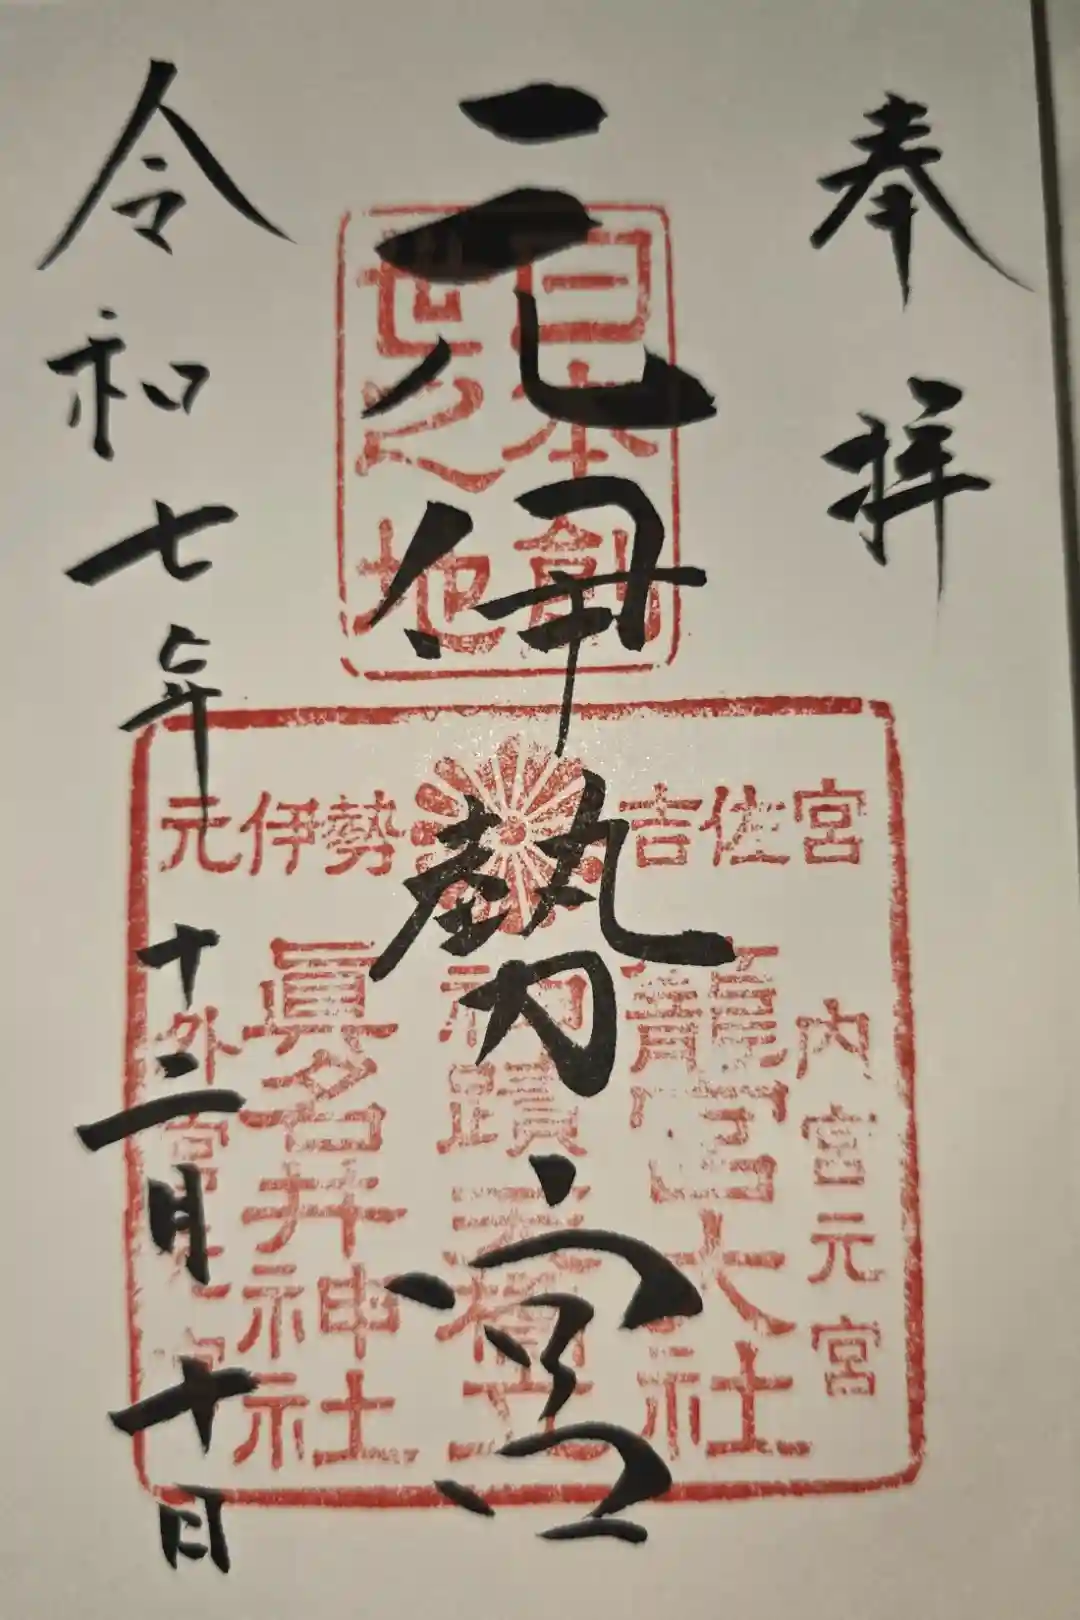 奉拝
元伊勢宮
令和七年十二月十日
日本創
世之地
元伊勢 吉佐宮
内宮元宮
籠宮大社
神蹟天橋立
眞名井神社
外宮元宮